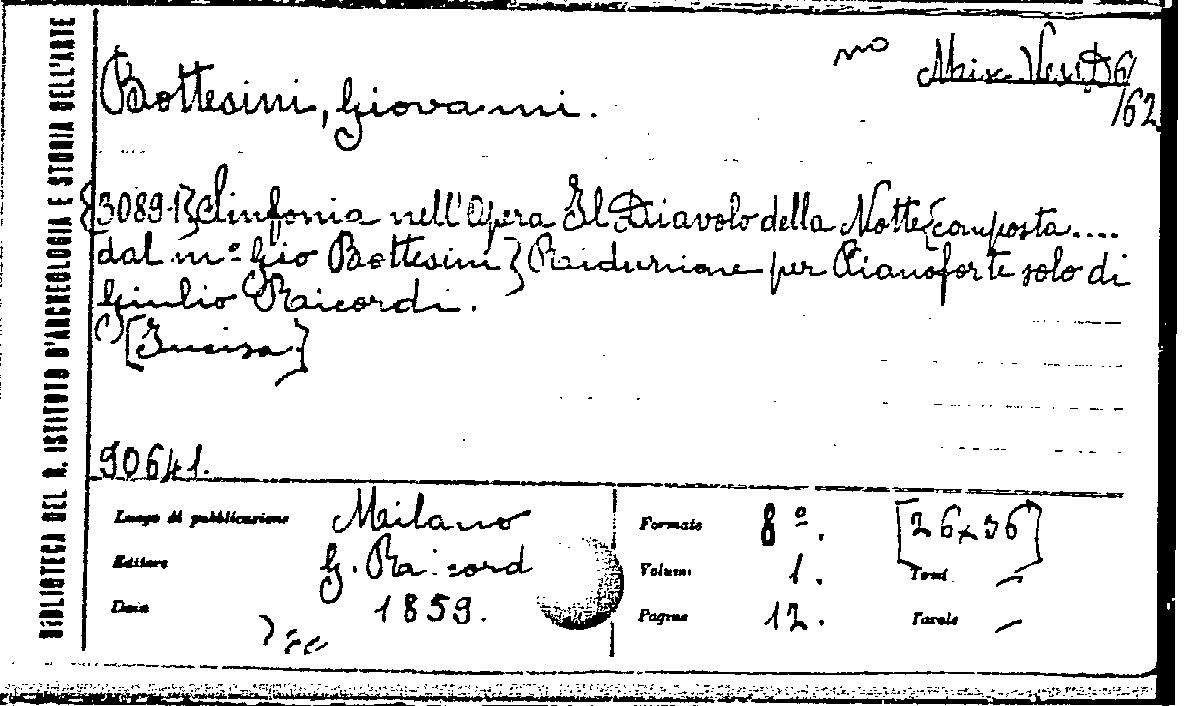 BIBLIOTECA DEL R. ISTITUTO D'ARCHEOLOGIA E STORIA DELL'ARTE
mo
Misc. Vess. D6/
/62
Bottesini, Giovanni.
{30891}Sinfonia nell'Opera Il Diavolo della Notte{composta....
dal m.º Gio Bottesini} Riduzione per Pianoforte solo di
Giulio Ricordi.
[Incisa.]
90641.
Luogo di pubblicazione Milano
Editore G. Ricord
Data 1859.
Formato 8º. [26x36]
Volumi 1. Tomi –
Pagine 12. Tavole –